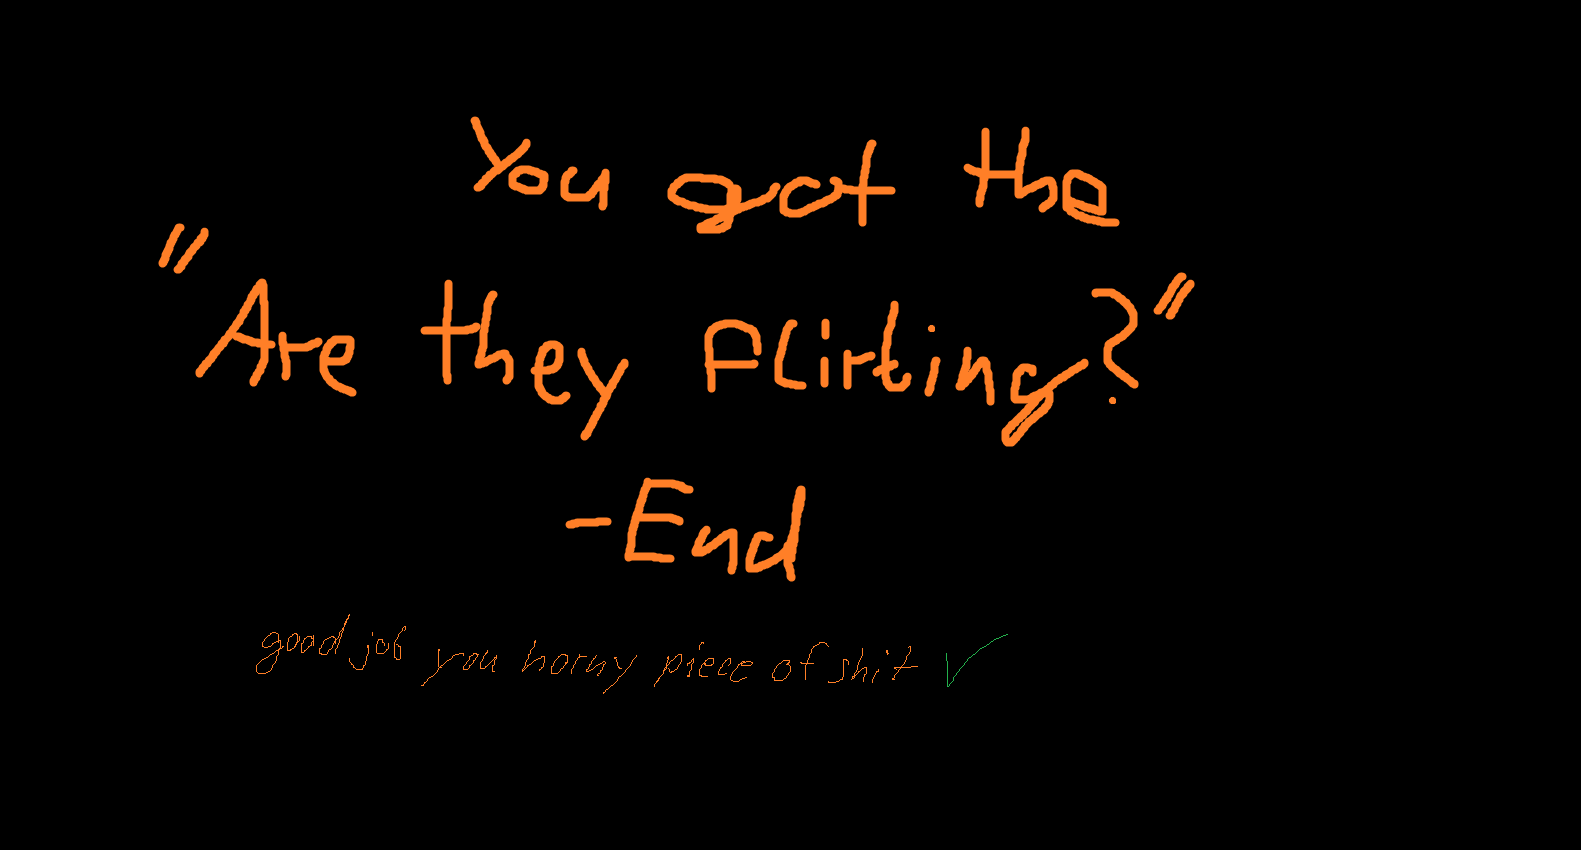 You got the
"Are they Flirting?"
-End
good job you horny piece of shit ✓